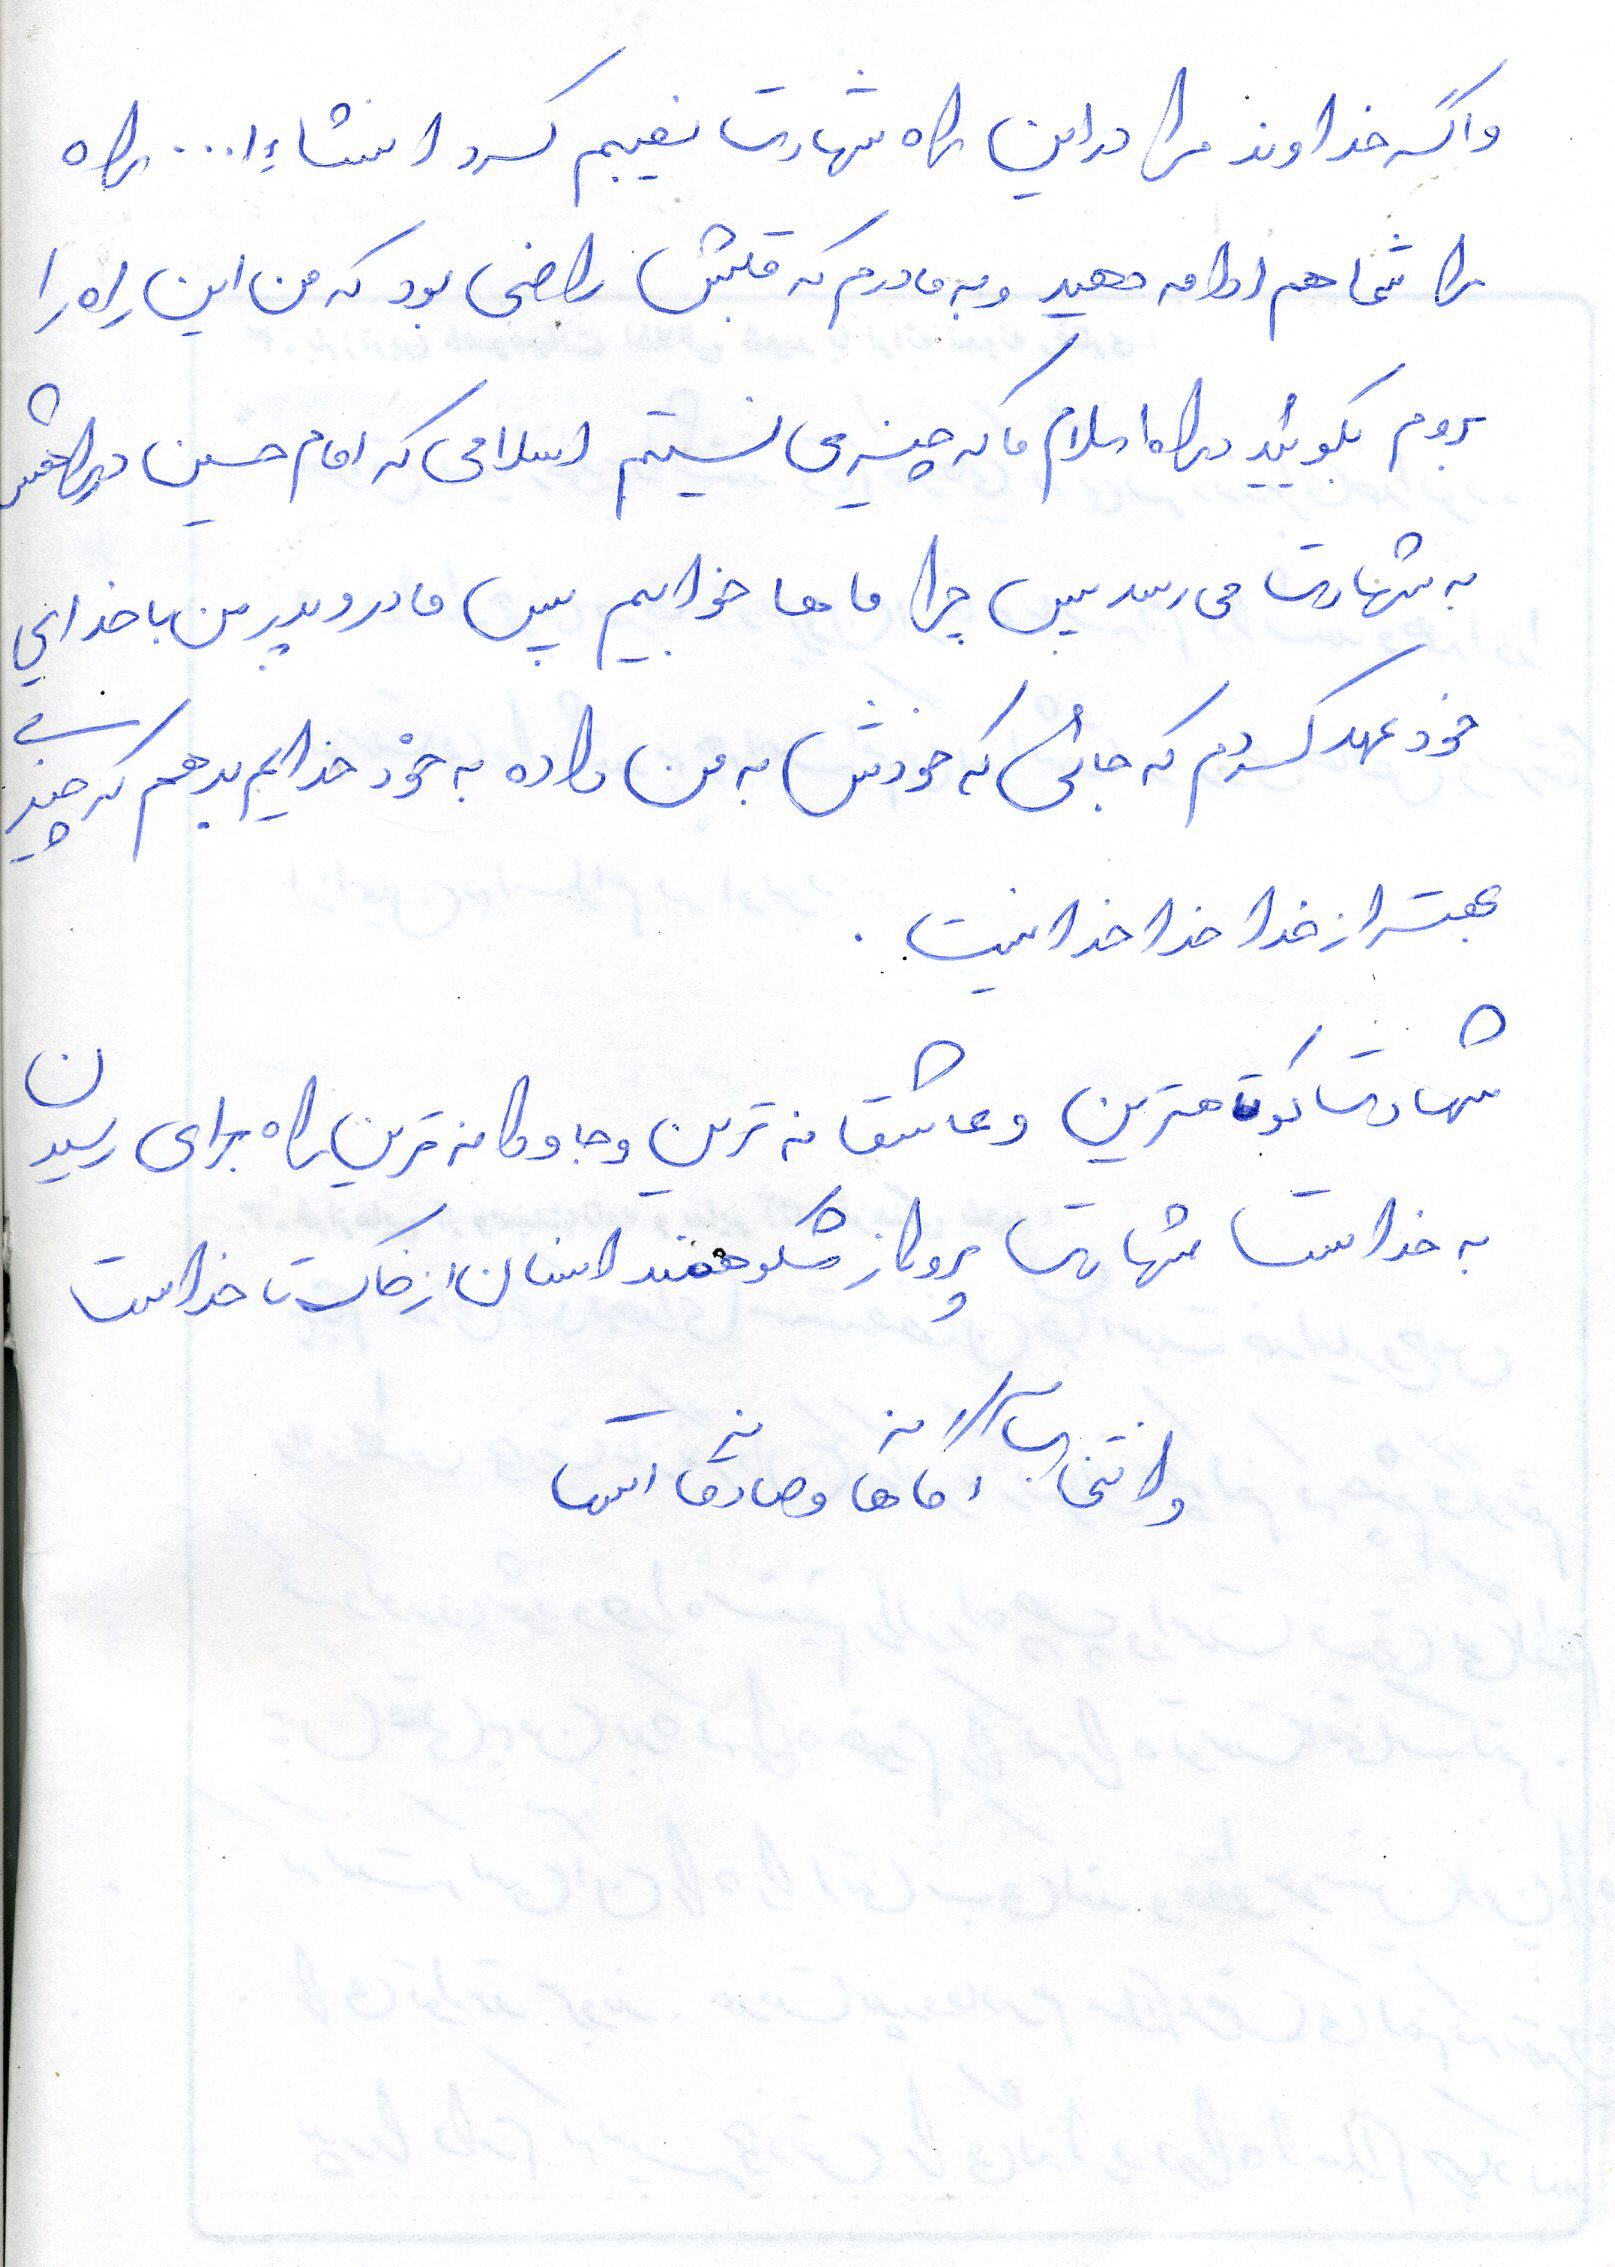 واگر خداوند مرا در این راه شهادت نصیبم کرد انشاءا... راه
را شما هم ادامه دهید و به مادرم که قلبش راضی بود که من این راه را
بروم بگوئید در راه اسلام ما که چیزی نیستیم اسلامی که امام حسین در راهش
به شهادت می رسد پس چرا ماها خوابیم پس مادر و پدر من با خدای
خود عهد کردم که جانی که خودش به من داده به خود خدایم بدهم که چیزی
بهتر از خدا خدا خدا نیست .
شهادت کوتاهترین و عاشقانه ترین و جاودانه ترین راه برای رسیدن
به خداست شهادت پرواز شکوهمند انسان از خاک تا خداست
و انتخاب آگاهانه و صادقانه است